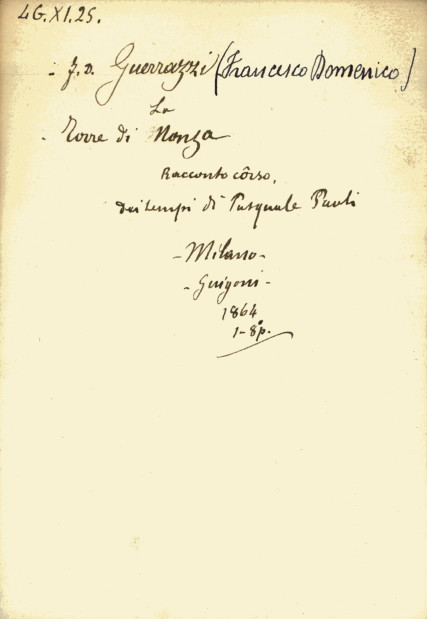 4G.XI.25.
- F. D. Guerrazzi (Francesco Domenico)
La
- Torre di Nonza
Racconto côrso,
dai tempi di Pasquale Paoli
- Milano -
- Guigoni -
1864
1-8°p.